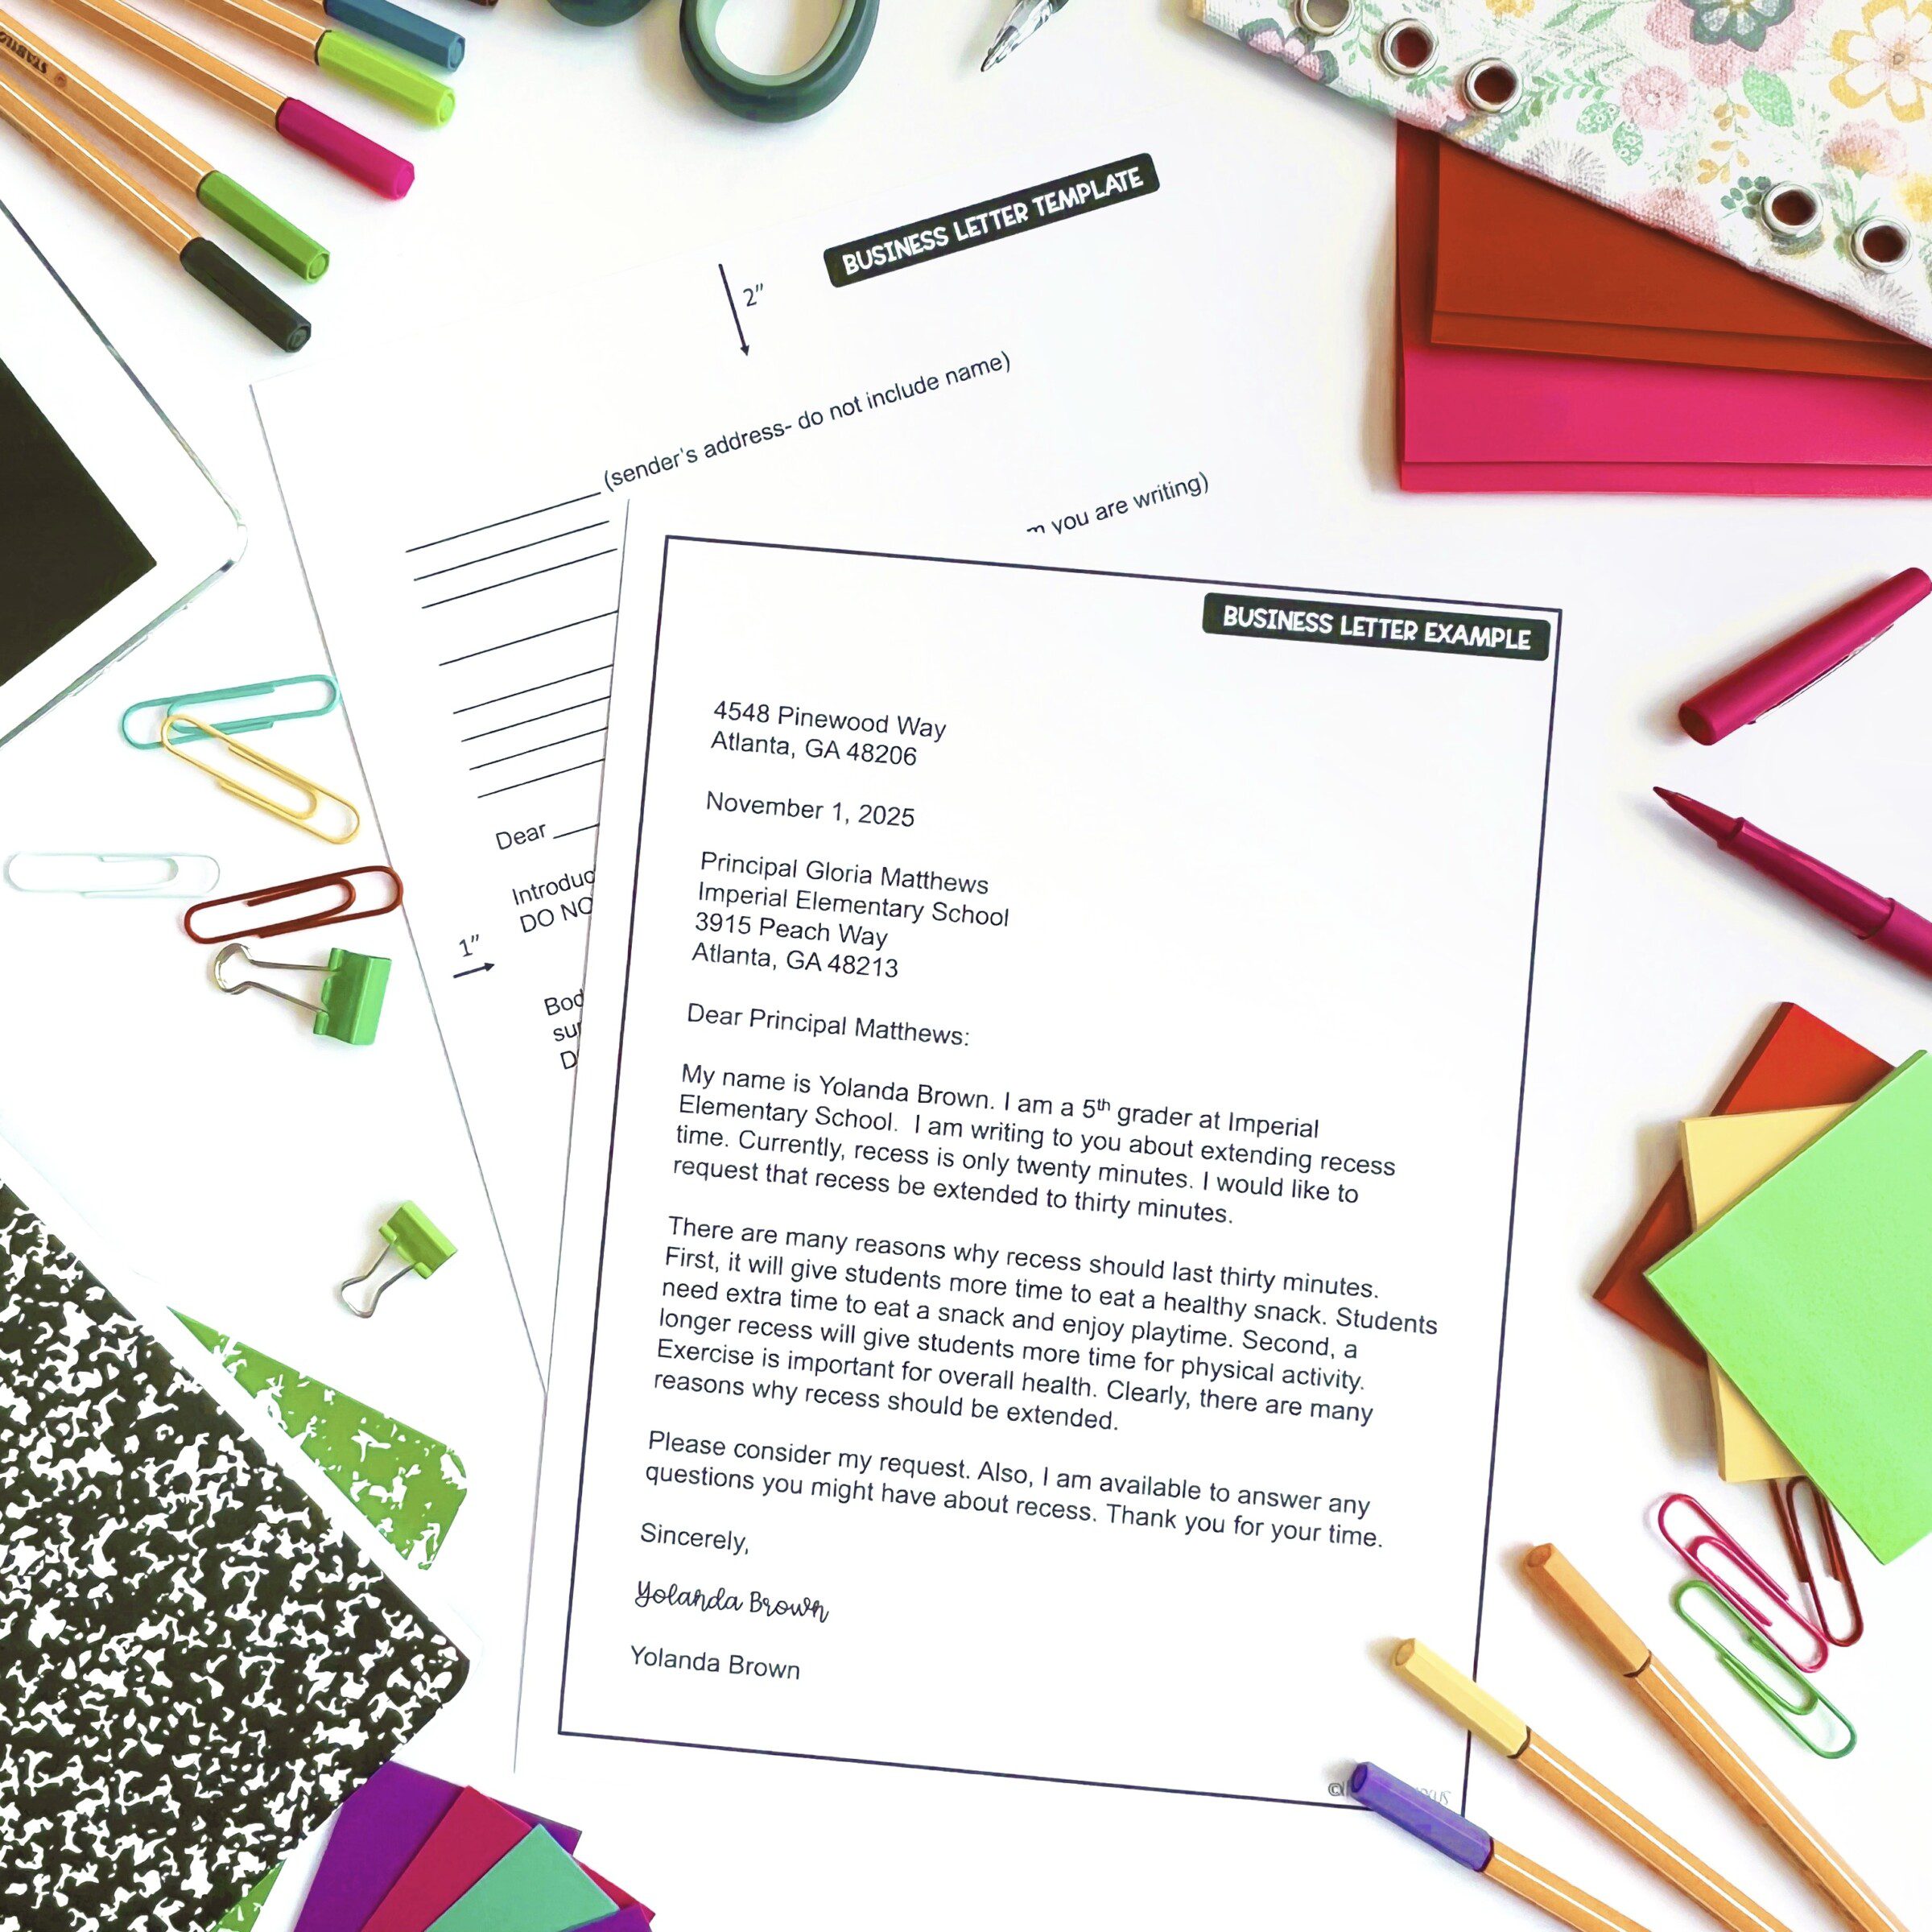 STABILO
BUSINESS LETTER TEMPLATE
2"
(sender's address- do not include name)
you are writing)
Dear
1"
DO
BUSINESS LETTER EXAMPLE
4548 Pinewood Way
Atlanta, GA 48206
November 1, 2025
Principal Gloria Matthews
Imperial Elementary School
3915 Peach Way
Atlanta, GA 48213
Dear Principal Matthews:
My name is Yolanda Brown. I am a 5th grader at Imperial
Elementary School.  I am writing to you about extending recess
time. Currently, recess is only twenty minutes. I would like to
request that recess be extended to thirty minutes.
There are many reasons why recess should last thirty minutes.
First, it will give students more time to eat a healthy snack. Students
need extra time to eat a snack and enjoy playtime. Second, a
longer recess will give students more time for physical activity.
Exercise is important for overall health. Clearly, there are many
reasons why recess should be extended.
Please consider my request. Also, I am available to answer any
questions you might have about recess. Thank you for your time.
Sincerely,
Yolanda Brown
Yolanda Brown